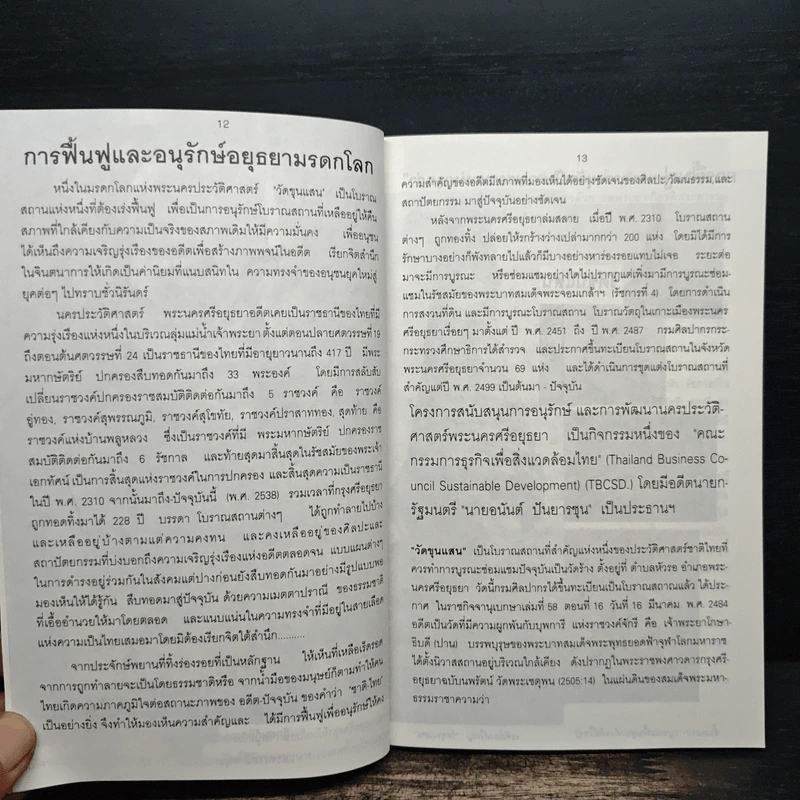 12
การฟื้นฟูและอนุรักษ์อยุธยามรดกโลก
หนึ่งในมรดกโลกแห่งพระนครประวัติศาสตร์ "วัดขุนแสน" เป็นโบราณ
สถานแห่งหนึ่งที่ต้องเร่งฟื้นฟู เพื่อเป็นการอนุรักษ์โบราณสถานที่เหลืออยู่ให้คืน
สภาพที่ใกล้เคียงกับความเป็นจริงของสภาพเดิมให้มีความมั่นคง เพื่ออนุชน
ได้เห็นถึงความเจริญรุ่งเรืองของอดีตเพื่อสร้างภาพพจน์ในอดีต เรียกจิตสำนึก
ในจินตนาการให้เกิดเป็นค่านิยมที่แนบสนิทใน ความทรงจำของอนุชนยุคใหม่สู่
ยุคต่อๆ ไปทราบชั่วนิรันดร์
นครประวัติศาสตร์ พระนครศรีอยุธยาอดีตเคยเป็นราชธานีของไทยที่มี
ความรุ่งเรืองแห่งหนึ่งในบริเวณลุ่มแม่น้ำเจ้าพระยา ตั้งแต่ตอนปลายศตวรรษที่ 19
ถึงตอนต้นศตวรรษที่ 24 เป็นราชธานีของไทยที่มีอายุยาวนานถึง 417 ปี มีพระ
มหากษัตริย์ ปกครองสืบทอดกันมาถึง 33 พระองค์ โดยมีการสลับสับ
เปลี่ยนราชวงค์ปกครองราชสมบัติติดต่อกันมาถึง 5 ราชวงค์ คือ ราชวงค์
อู่ทอง, ราชวงค์สุพรรณภูมิ, ราชวงค์สุโขทัย, ราชวงค์ปราสาททอง, สุดท้าย คือ
ราชวงค์แห่งบ้านพลูหลวง ซึ่งเป็นราชวงค์ที่มี พระมหากษัตริย์ ปกครองราช
สมบัติติดต่อกันมาถึง 6 รัชกาล และท้ายสุดมาสิ้นสุดในรัชสมัยของพระเจ้า
เอกทัศน์ เป็นการสิ้นสุดแห่งราชวงค์ในการปกครอง และสิ้นสุดความเป็นราชธานี
ในปี พ.ศ. 2310 จากนั้นมาถึง-ปัจจุบันนี้ (พ.ศ. 2538) รวมเวลาที่กรุงศรีอยุธยา
ถูกทอดทิ้งมาได้ 228 ปี บรรดา โบราณสถานต่างๆ ได้ถูกทำลายไปบ้าง
และเหลืออยู่บ้างตามแต่ความคงทน และคงเหลืออยู่ของศิลปะและ
สถาปัตยกรรม ที่บ่งบอกถึงความเจริญรุ่งเรืองแห่งอดีตตลอดจน แบบแผนต่างๆ
ในการดำรงอยู่ร่วมกันในสังคมแต่ปางก่อนยังสืบทอดกันมาอย่างมีรูปแบบพอ
มองเห็นให้ได้รู้กัน สืบทอดมาสู่ปัจจุบัน ด้วยความเมตตาปราณี ของธรรมชาติ
ที่เอื้ออำนวยให้มาโดยตลอด และแนบแน่นในความทรงจำที่มีอยู่ในสายเลือด
แห่งความเป็นไทยเสมอมาโดยมิต้องเรียกจิตใต้สำนึก..........
จากประจักษ์พยานที่ทิ้งร่องรอยที่เป็นหลักฐาน ให้เห็นที่เหลือเร็ดรอด
จากการถูกทำลายจะเป็นโดยธรรมชาติหรือ จากน้ำมือของมนุษย์ก็ตามทำให้คน
ไทยเกิดความภาคภูมิใจต่อสถานะภาพของ อดีต-ปัจจุบัน ของคำว่า "ชาติ-ไทย"
เป็นอย่างยิ่ง จึงทำให้มองเห็นความสำคัญและ ได้มีการฟื้นฟูเพื่ออนุรักษ์ให้คง
13
ความสำคัญของอดีตมีสภาพที่มองเห็นได้อย่างชัดเจนของศิลปะ,วัฒนธรรม,และ
สถาปัตยกรรม มาสู่ปัจจุบันอย่างชัดเจน
หลังจากพระนครศรีอยุธยาล่มสลาย เมื่อปี พ.ศ. 2310 โบราณสถาน
ต่างๆ ถูกทองทิ้ง ปล่อยให้รกร้างว่างเปล่ามากกว่า 200 แห่ง โดยมิได้มีการ
รักษาบางอย่างก็พังทลายไปแล้วก็มีบางอย่างหาร่องรอยแทบไม่เจอ ระยะต่อ
มาจะมีการบูรณะ หรือซ่อมแซมอย่างใดไม่ปรากฏแต่เพิ่งมามีการบูรณะซ่อม-
แซมในรัชสมัยของพระบาทสมเด็จพระจอมเกล้าฯ (รัชการที่ 4) โดยการดำเนิน
การสงวนที่ดิน และมีการบูรณะโบราณสถาน โบราณวัตถุในเกาะเมืองพระนคร
ศรีอยุธยาเรื่อยๆ มาตั้งแต่ ปี พ.ศ. 2451 ถึง ปี พ.ศ. 2487 กรมศิลปากรกระ-
กระทรวงศึกษาธิการได้สำรวจ และประกาศขึ้นทะเบียนโบราณสถานในจังหวัด
พระนครศรีอยุธยาจำนวน 69 แห่ง และได้ดำเนินการขุดแต่งโบราณสถานที่
สำคัญแต่ปี พ.ศ. 2499 เป็นต้นมา - ปัจจุบัน
โครงการสนับสนุนการอนุรักษ์ และการพัฒนานครประวัติ-
ศาสตร์พระนครศรีอยุธยา เป็นกิจกรรมหนึ่งของ "คณะ
กรรมการธุรกิจเพื่อสิ่งแวดล้อมไทย" (Thailand Business Co-
uncil Sustainable Development) (TBCSD.) โดยมีอดีตนายก-
รัฐมนตรี "นายอนันต์ ปันยารชุน" เป็นประธานฯ
"วัดขุนแสน" เป็นโบราณสถานที่สำคัญแห่งหนึ่งของประวัติศาสตร์ชาติไทยที่
ควรทำการบูรณะซ่อมแซมปัจจุบันเป็นวัดร้าง ตั้งอยู่ที่ ตำบลหัวรอ อำเภอพระ-
นครศรีอยุธยา วัดนี้กรมศิลปากรได้ขึ้นทะเบียนเป็นโบราณสถานแล้ว ได้ประ-
กาศ ในราชกิจจานุเบกษาเล่มที่ 58 ตอนที่ 16 วันที่ 16 มีนาคม พ.ศ. 2484
อดีตเป็นวัดที่มีความผูกพันกับบุพการี แห่งราชวงค์จักรี คือ เจ้าพระยาโกษา-
ธิบดี (ปาน) บรรพบุรุษของพระบาทสมเด็จพระพุทธยอดฟ้าจุฬาโลกมหาราช
ได้ตั้งนิวาสสถานอยู่บริเวณใกล้เคียง ดังปรากฏในพระราชพงศาวดารกรุงศรี
อยุธยาฉบับนพรัตน์ วัดพระเชตุพน (2505:14) ในแผ่นดินของสมเด็จพระมหา-
ธรรมราชาความว่า